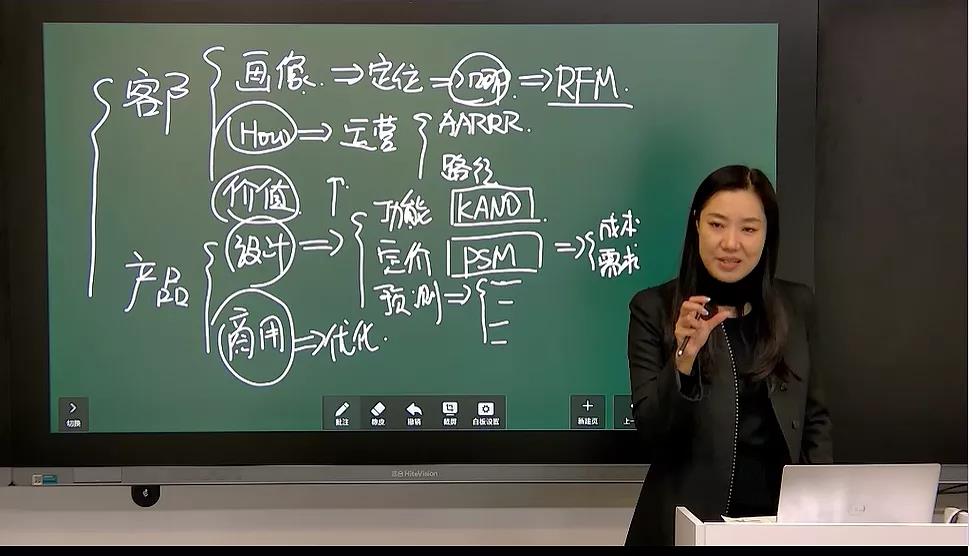 客户
画像 ⇒ 定位 ⇒ ⇒ RFM
How ⇒ 运营
AARRR
路径
价值 ↑
产品
设计 ⇒
功能 KANO
定价 PSM ⇒ 成本
需求
预测 ⇒
商用 ⇒ 优化
切换
批注 橡皮 撤销 截屏 白板设置
新建页 上一
HiteVision